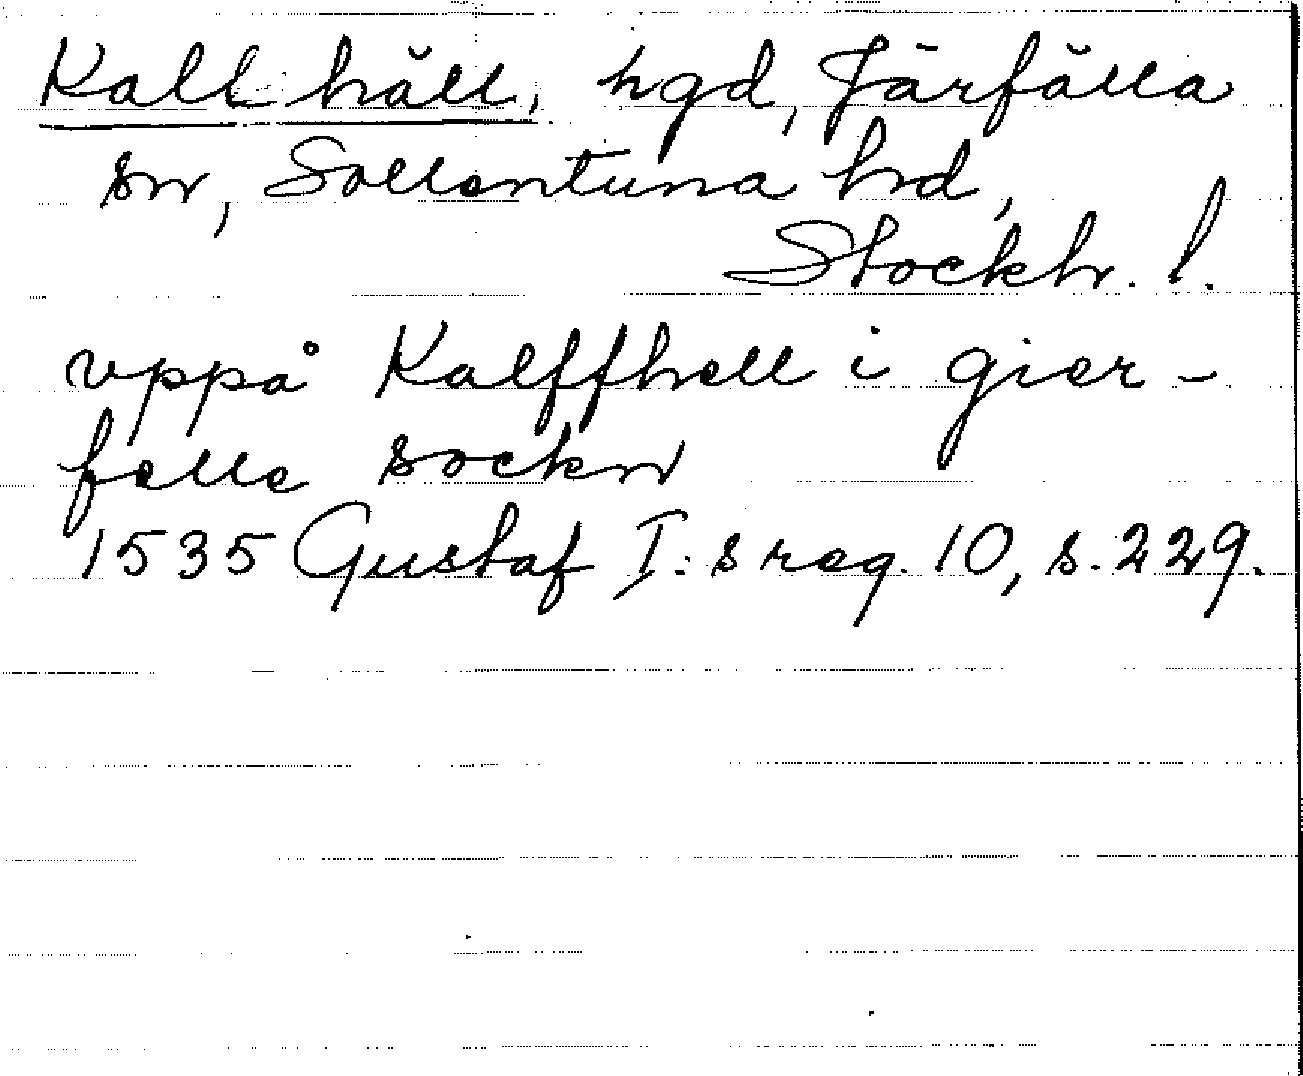 Kallhäll, hgd, Järfälla
sn, Sollentuna hd,
Stockh. l.
vppå Kalffhell i gier-
felle sockn
1535 Gustaf I:s reg. 10, s. 229.